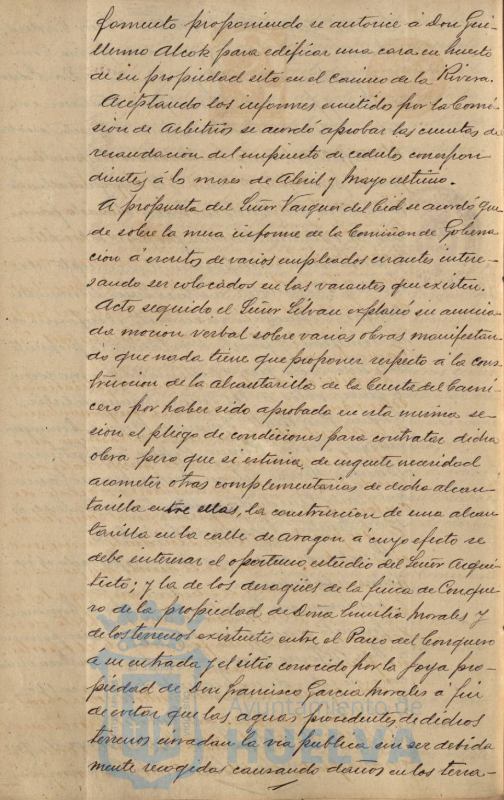 fomento proponiendo se autorice á Don Gui-
llermo Alcok para edificar una casa en huerto
de su propiedad sito en el Camino de la Rivera.
Aceptando los informes emitidos por la Comi-
sion de Arbitrios se acordó aprobar las cuentas de
recaudacion del impuesto de cédulas correspon-
dientes á los meses de Abril y Mayo ultimo.
A propuesta del Señor Vazquez del Cid se acordó que-
de sobre la mesa informe de la Comision de Goberna
cion á escritos de varios empleados cesantes intere-
sando ser colocados en las vacantes que existen.
Acto seguido el Señor Silvan explanó su anuncia-
da mocion verbal sobre varias obras manifestan-
do que nada tiene que proponer respecto á la cons-
truccion de la alcantarilla de la Cuesta del Carni-
cero por haber sido aprobado en esta misma se-
sion el pliego de condiciones para contratar dicha
obra pero que si estima de urgente necesidad
acometer otras complementarias de dicha alcan-
tarilla entre ellas, la construccion de una alcan
tarilla en la calle de Aragon á cuyo efecto se
debe interesar el oportuno estudio del Señor Arqui-
tecto; y la de los desagües de la finca de Conque-
ro de la propiedad de Doña Emilia Morales y
de los terrenos existentes entre el Paseo del Conquero
a su entrada y el sitio conocido por la Joya pro-
piedad de Don Francisco Garcia Morales á fin
de evitar que las aguas procedentes de dichos
terrenos invadan la via publica sin ser debida
mente recogidas causando daños en los terra-
Ayuntamiento de
HUELVA